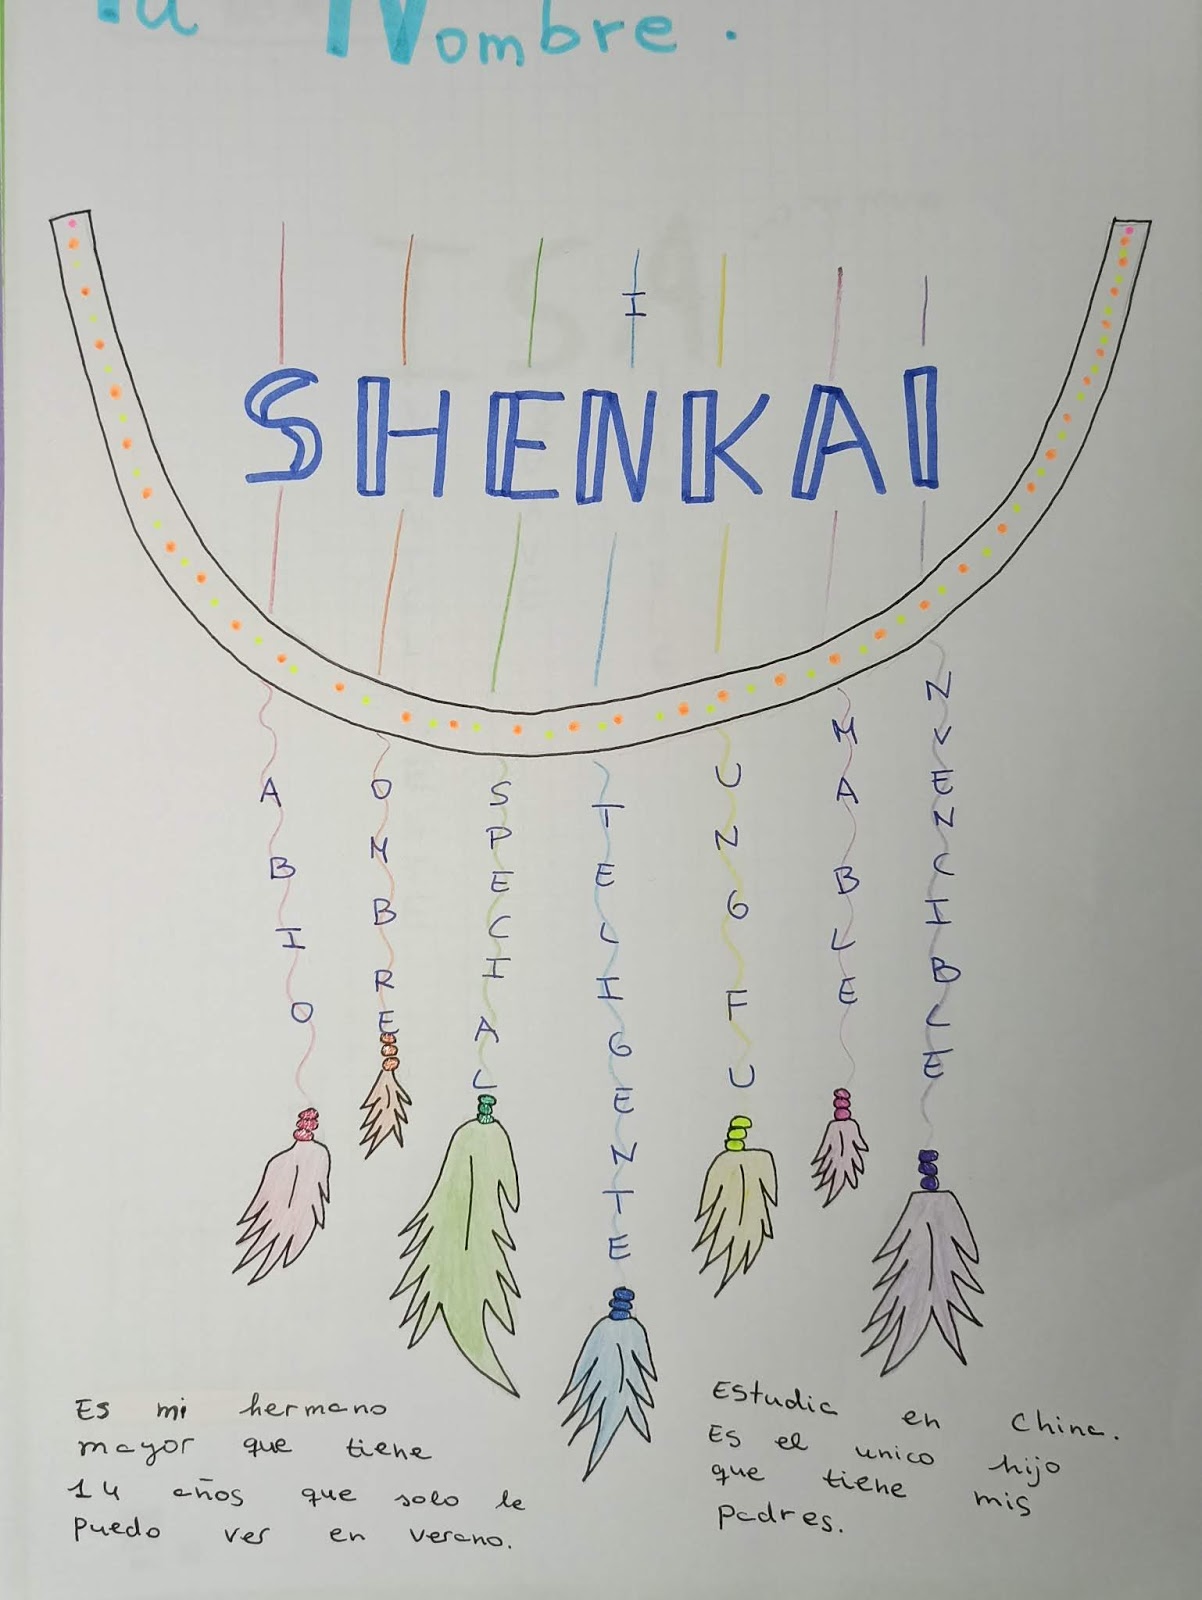 Tu Nombre.
I
SHENKAI
ABIO
OMBRE
SPECIAL
TELIGENTE
UNGFU
MABLE
NVENCIBLE
Es mi hermano
mayor que tiene
14 años que solo le
puedo ver en verano.
Estudia en China.
Es el unico hijo
que tiene mis
padres.